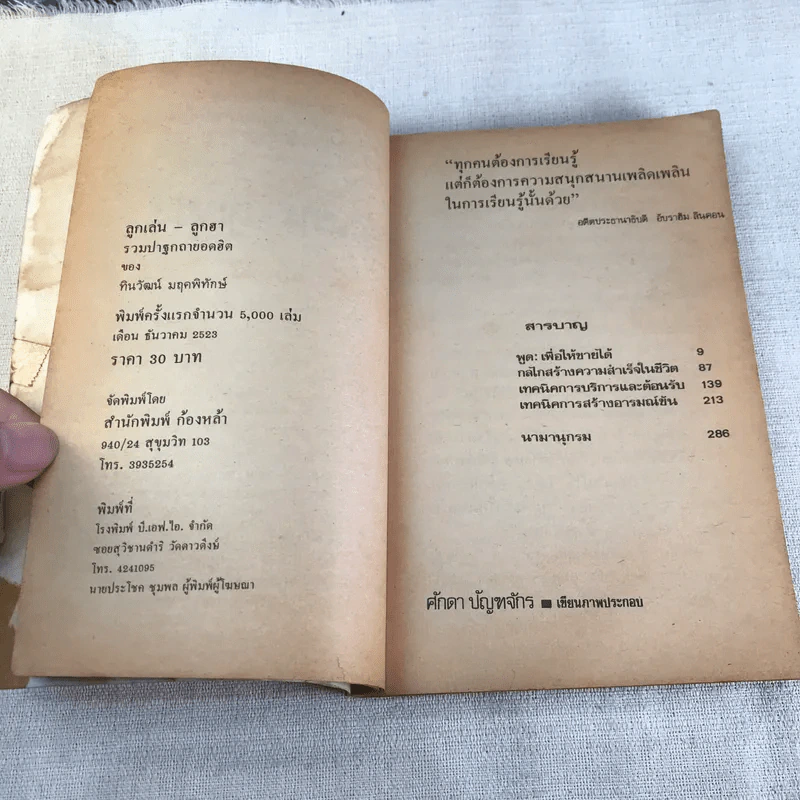 ลูกเล่น – ลูกฮา
รวมปาฐกถายอดฮิต
ของ
ทินวัฒน์ มฤคพิทักษ์
พิมพ์ครั้งแรกจำนวน 5,000 เล่ม
เดือน ธันวาคม 2523
ราคา 30 บาท
จัดพิมพ์โดย
สำนักพิมพ์ ก้องหล้า
940/24 สุขุมวิท 103
โทร. 3935254
พิมพ์ที่
โรงพิมพ์ ป๊.เอฟ.ไอ. จำกัด
ซอยสุวิชานดำริ วัดดาวดึงษ์
โทร. 4241095
นายประโชค ชุมพล ผู้พิมพ์ผู้โฆษณา
“ทุกคนต้องการเรียนรู้
แต่ก็ต้องการความสนุกสนานเพลิดเพลิน
ในการเรียนรู้นั้นด้วย”
อดีตประธานาธิบดี อับราฮัม ลินคอน
สารบาญ
พูด: เพื่อให้ขายได้ 9
กลไกสร้างความสำเร็จในชีวิต 87
เทคนิคการบริการและต้อนรับ 139
เทคนิคการสร้างอารมณ์ขัน 213
นามานุกรม 286
ศักดา ปัญฑจักร ■ เขียนภาพประกอบ